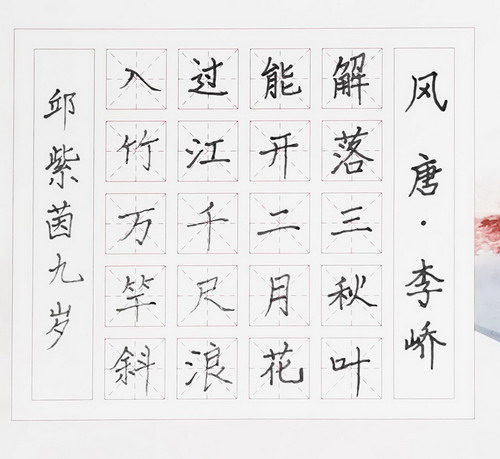 风 唐·李峤
解落三秋叶
能开二月花
过江千尺浪
入竹万竿斜
邱紫茵九岁